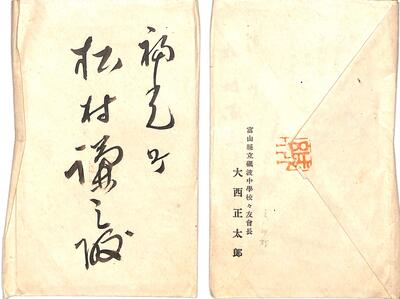 福光町
松村謙三殿
富山縣立礪波中學校々友會長
大西正太郎